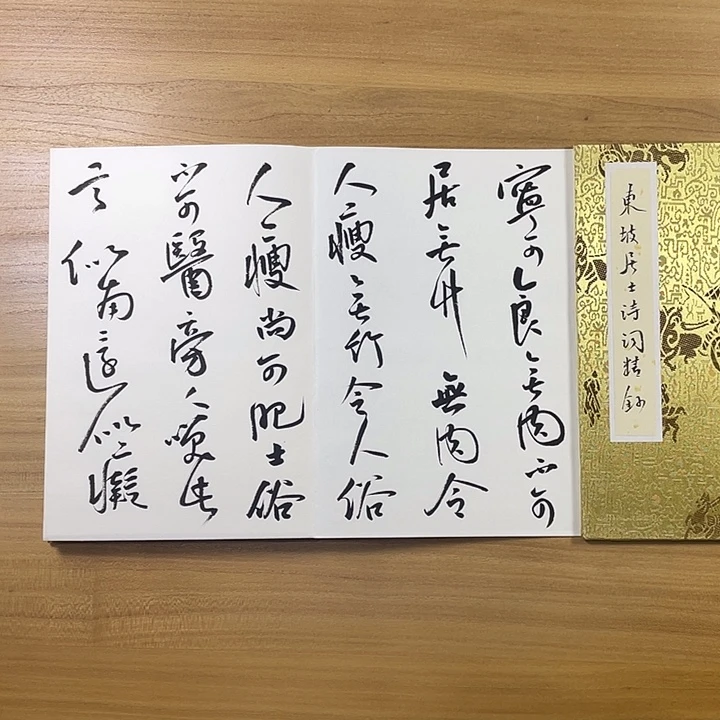 東坡居士詩詞精鈔
寧可食無肉不可
居無竹無肉令
人瘦無竹令人俗
人瘦尚可肥士俗
不可醫旁人咲此
言似高還似癡